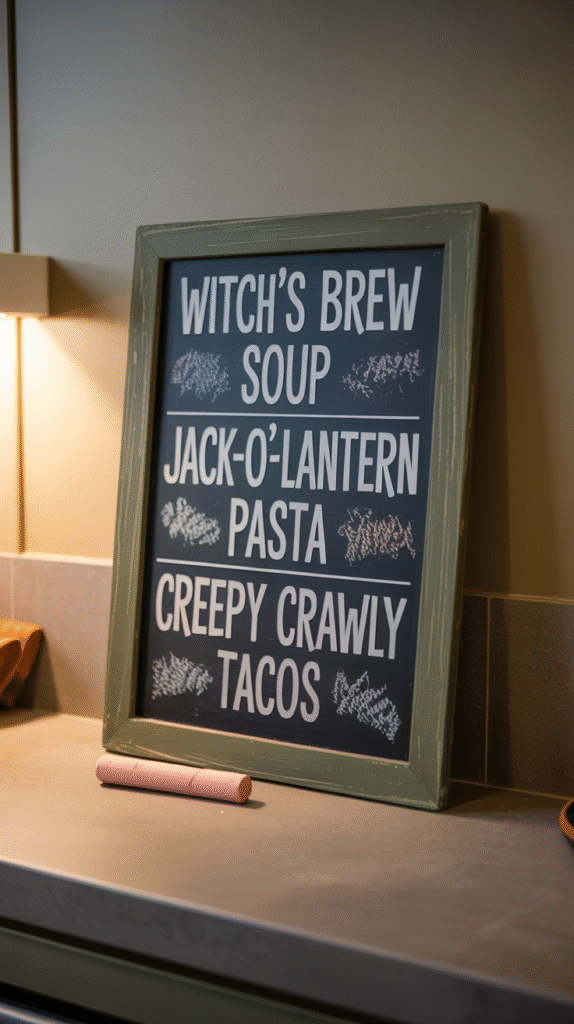 WITCH'S BREW
SOUP
JACK-O'-LANTERN
PASTA
CREEPY CRAWLY
TACOS